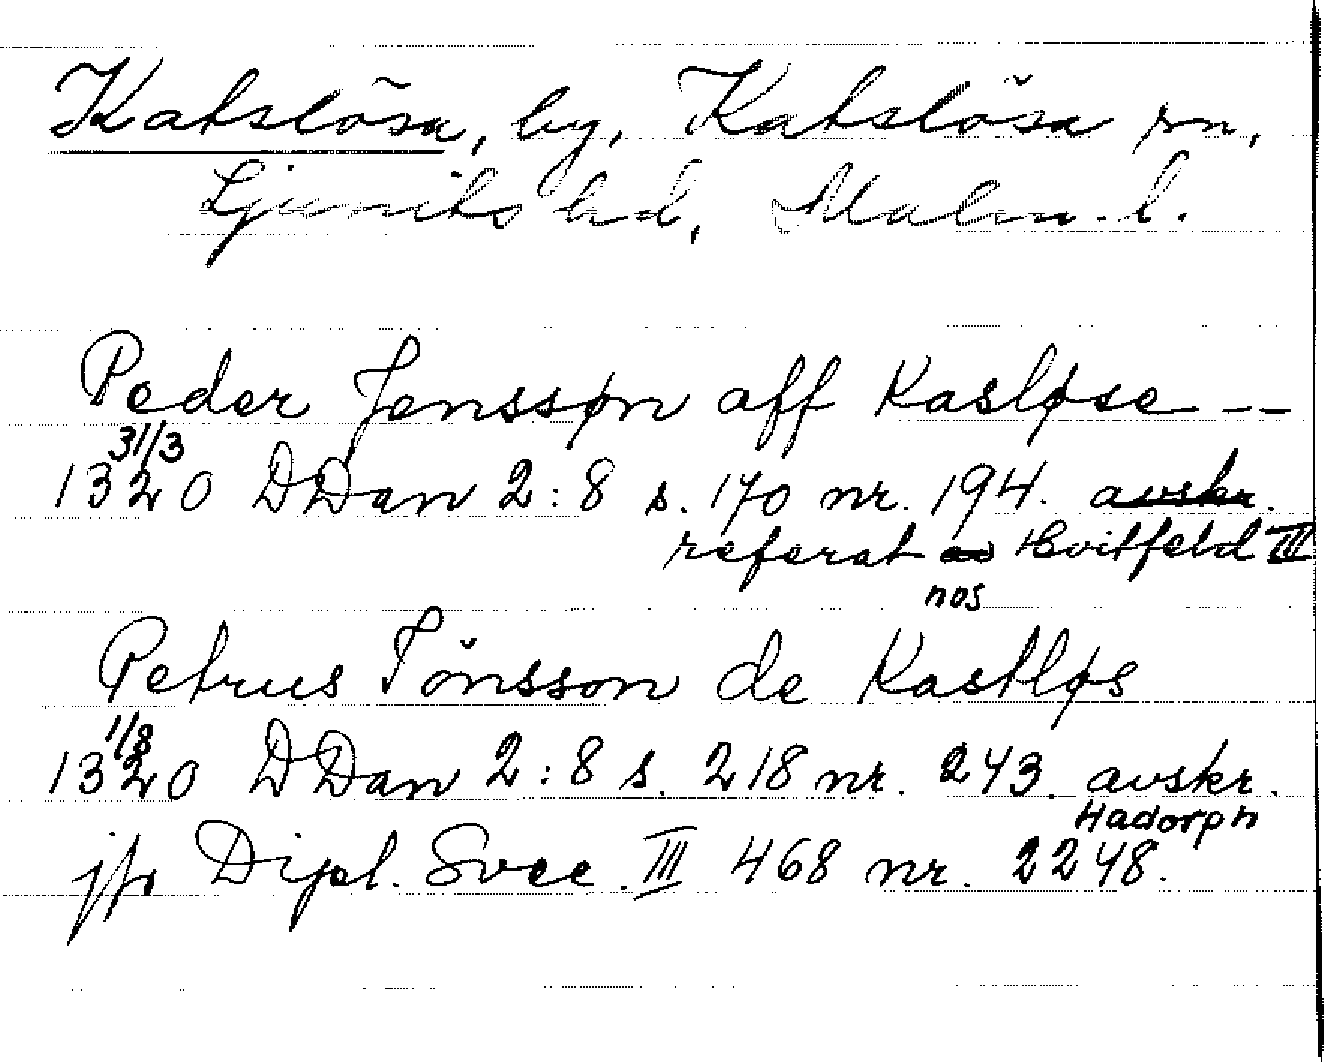 Katslösa, by, Katslösa sn,
Ljunits hd, Malm. l.
Peder Jenssøn aff Kasløse --
31/3
1320 DDan 2:8 s. 170 nr. 194. avskr.
referat Hvitfeld III
hos
Petrus Jönsson de Kastløs
1/8
1320 DDan 2:8 s. 218 nr. 243. avskr.
Hadorph
jfr Dipl. Svec. III 468 nr. 2248.